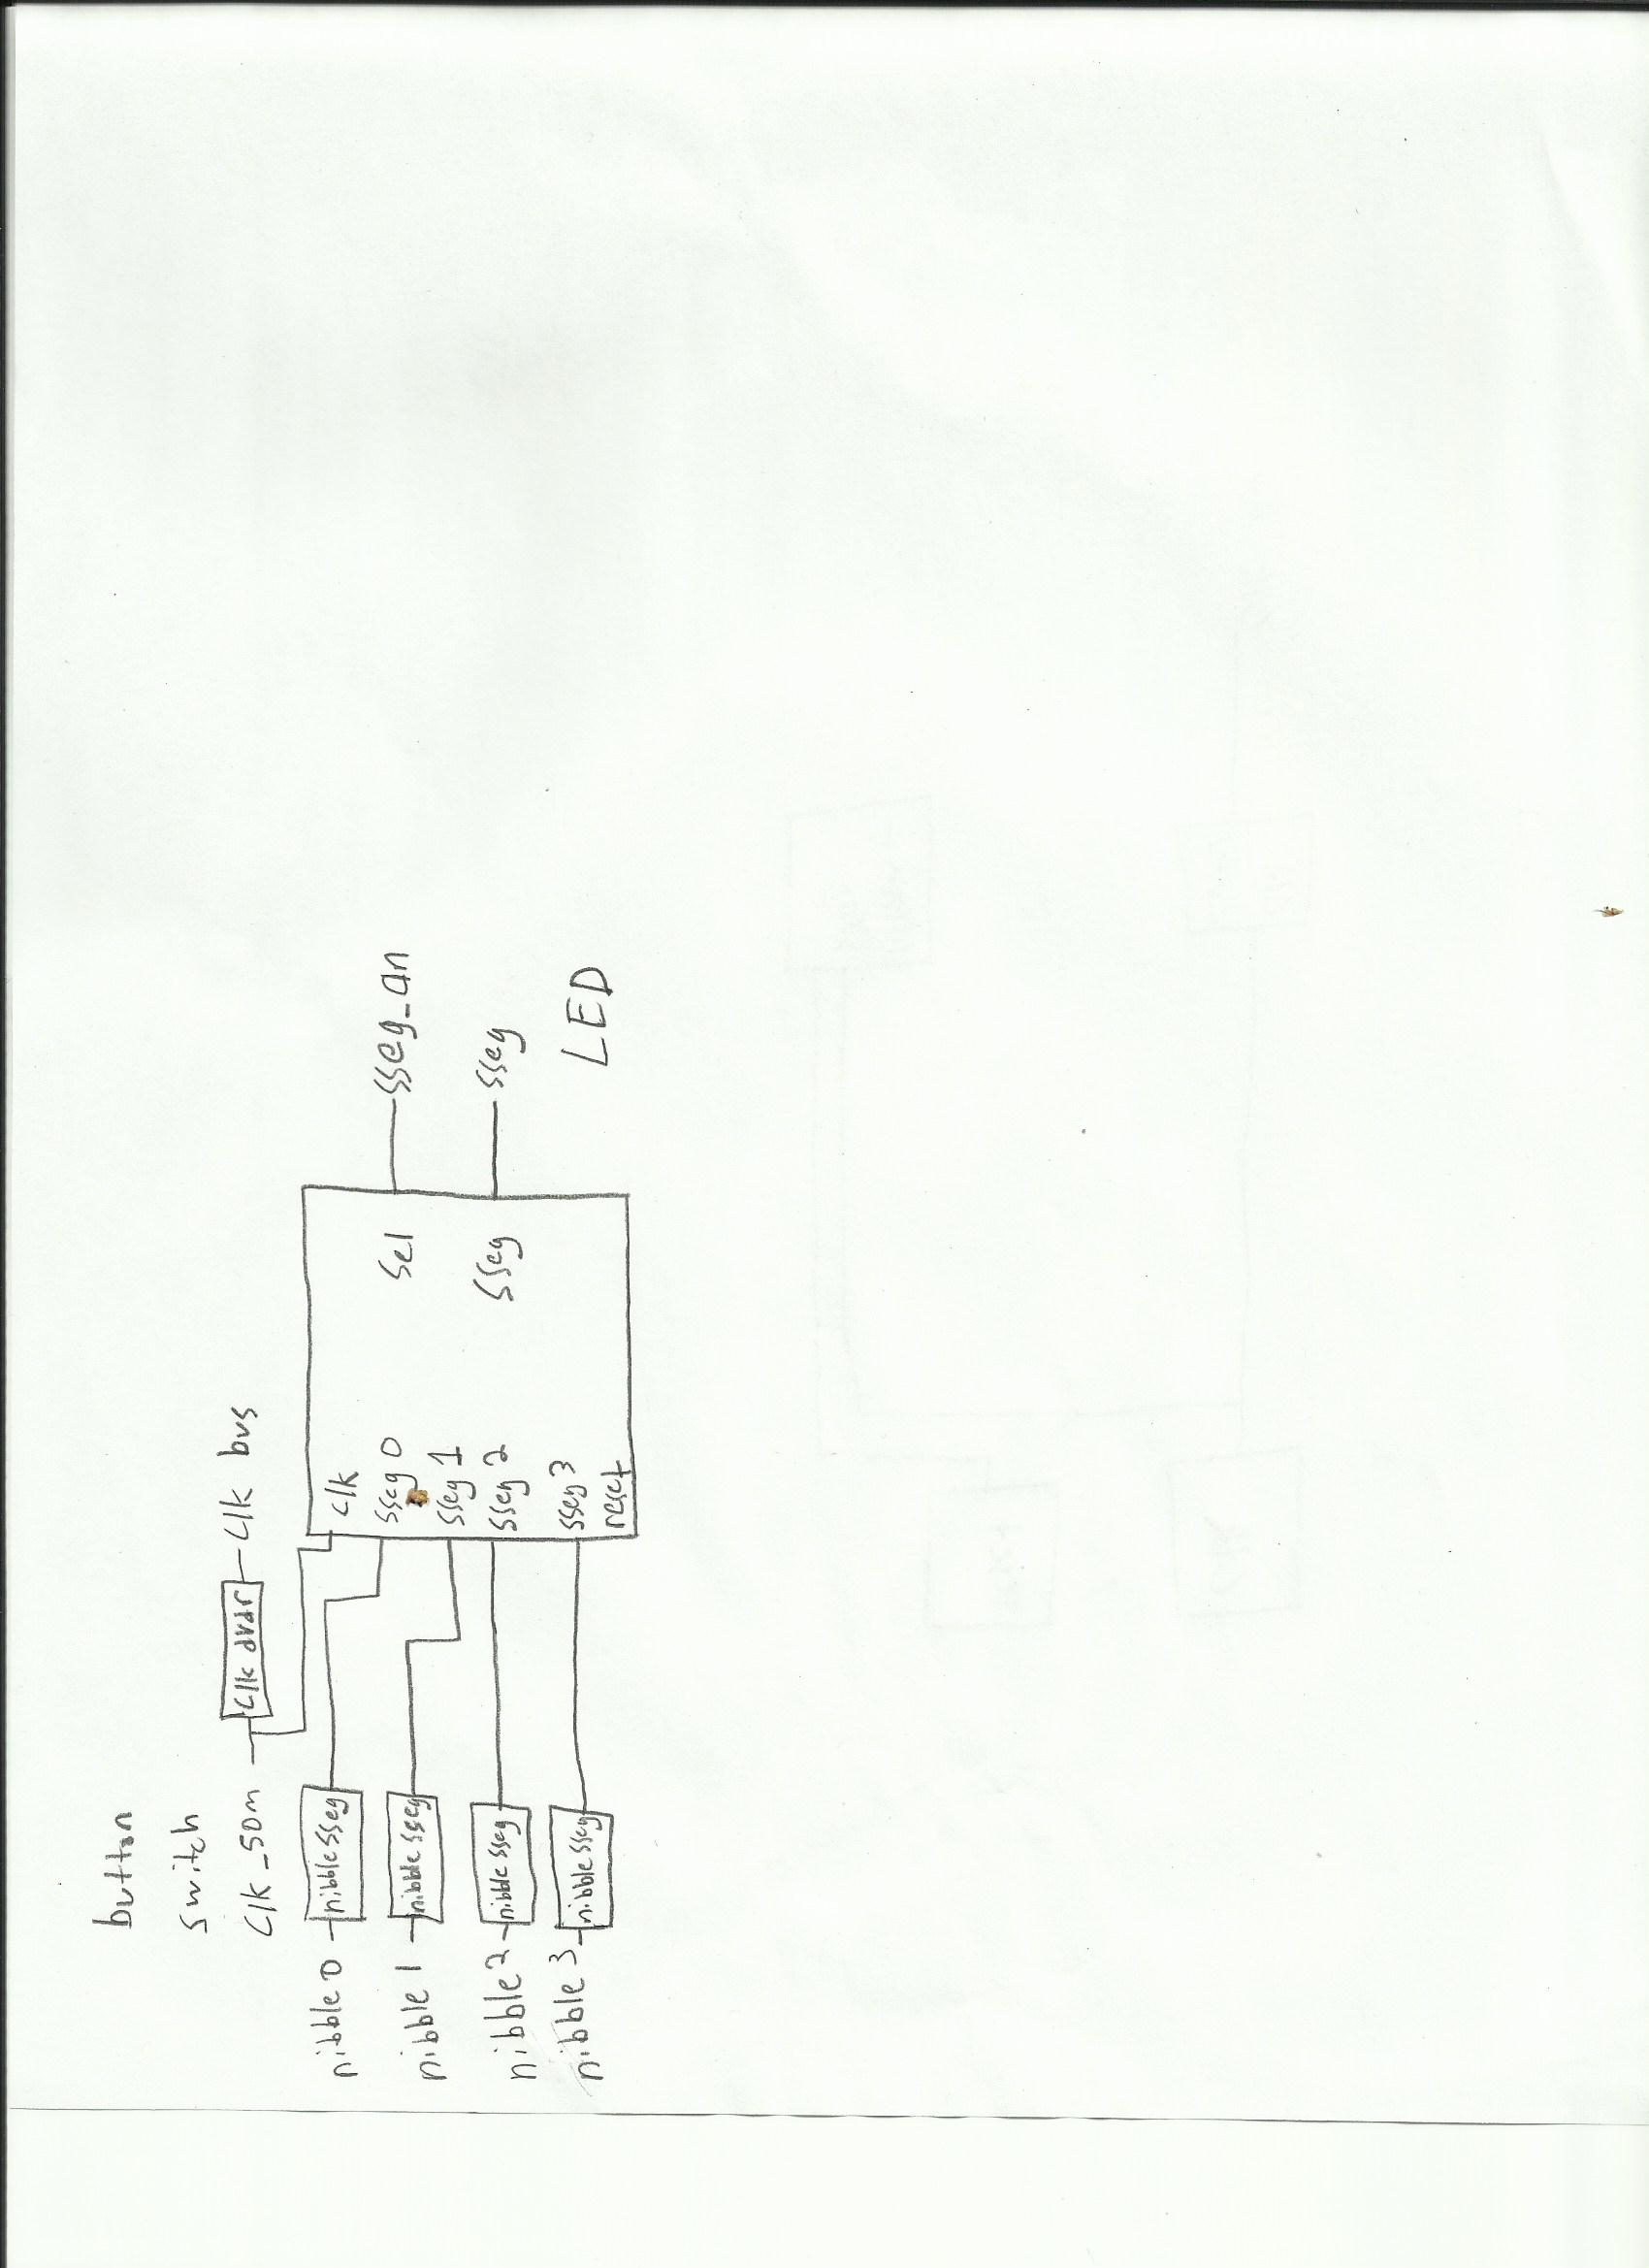 button
switch
clk_50m
clk dvdr
clk bus
nibble 0
nibble sseg
nibble 1
nibble sseg
nibble 2
nibble sseg
nibble 3
nibble sseg
clk
sseg 0
sseg 1
sseg 2
sseg 3
reset
sel
sseg
sseg_an
sseg
LED